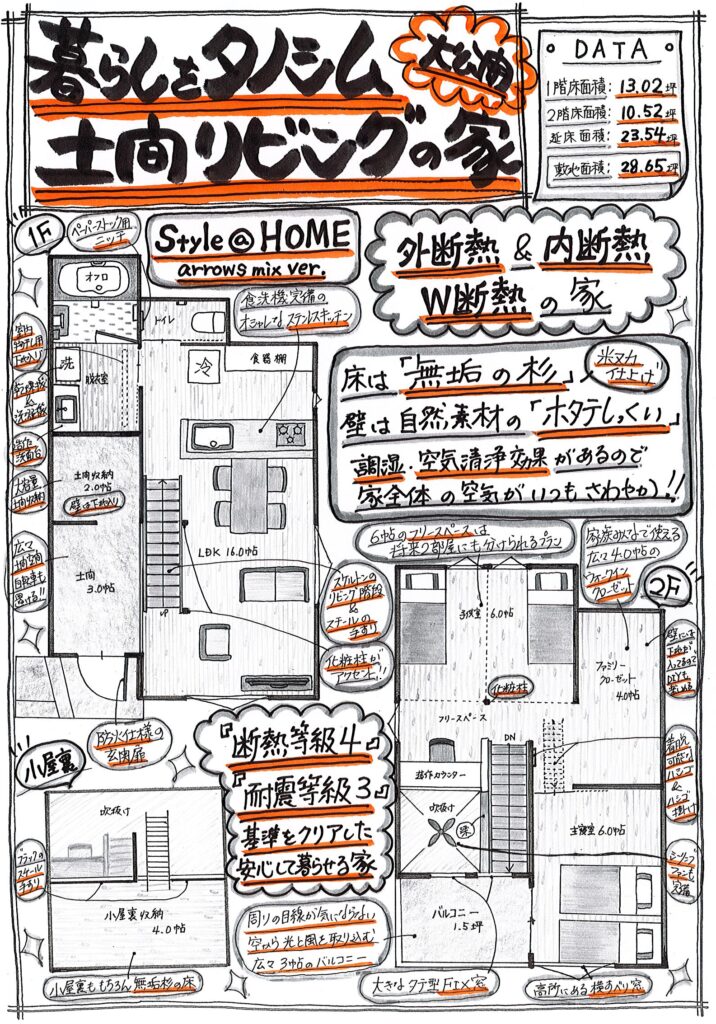 暮らしをタノシム
大公開
土間リビングの家
DATA
1階床面積: 13.02坪
2階床面積: 10.52坪
延床面積: 23.54坪
敷地面積: 28.65坪
1F
ペーパーストック用
ニッチ
Style@HOME
arrows mix ver.
外断熱&内断熱
W断熱の家
食洗機完備の
オシャレなステンレスキッチン
床は「無垢の杉」
米ヌカ
仕上げ
壁は自然素材の「ホタテしっくい」
調湿・空気清浄効果があるので
家全体の空気がいつもさわやか!!
オフロ
トイレ
洗
脱衣室
冷
食器棚
造作
洗面台
大容量
土間収納
土間収納
2.0帖
壁は下地入り
広々
土間空間
自転車も
置ける!!
土間
3.0帖
LDK 16.0帖
UP
スケルトンの
リビング階段
&
スチールの
手すり
化粧柱が
アクセント!!
防火仕様の
玄関扉
6帖のフリースペースは
将来2部屋にも分けられるプラン
家族みんなで使える
広々4.0帖の
ウォークイン
クローゼット
2F
子供室 6.0帖
化粧柱
フリースペース
ファミリー
クローゼット
4.0帖
壁には
下地が
入ってるので
DIYも
楽しめる
DN
造作カウンター
吹抜け
主寝室 6.0帖
着脱
可能な
ハシゴ
&
ハシゴ
掛け
シーリング
ファンも
完備
バルコニー
1.5坪
大きなタテ型FIX窓
高所にある横すべり窓
小屋裏
吹抜け
ブラックの
スチール
手すり
小屋裏収納
4.0帖
小屋裏ももちろん無垢杉の床
『断熱等級4』
『耐震等級3』
基準をクリアした
安心して暮らせる家
周りの目線が気にならない
空から光と風を取り込む
広々3帖のバルコニー